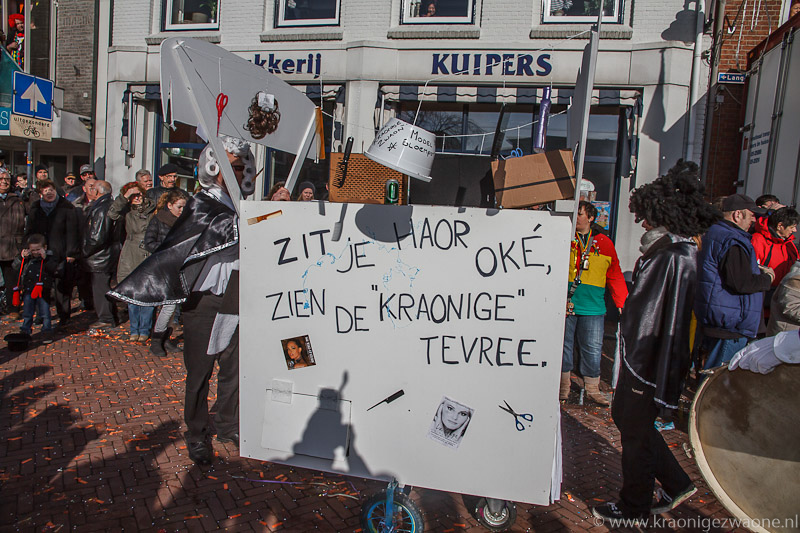 kkerij KUIPERS
LANG
uitgezonderd
MODEL
ZIT JE HAOR OKÉ,
ZIEN DE "KRAONIGE"
TEVREE.
www.kraonigezwaone.nl